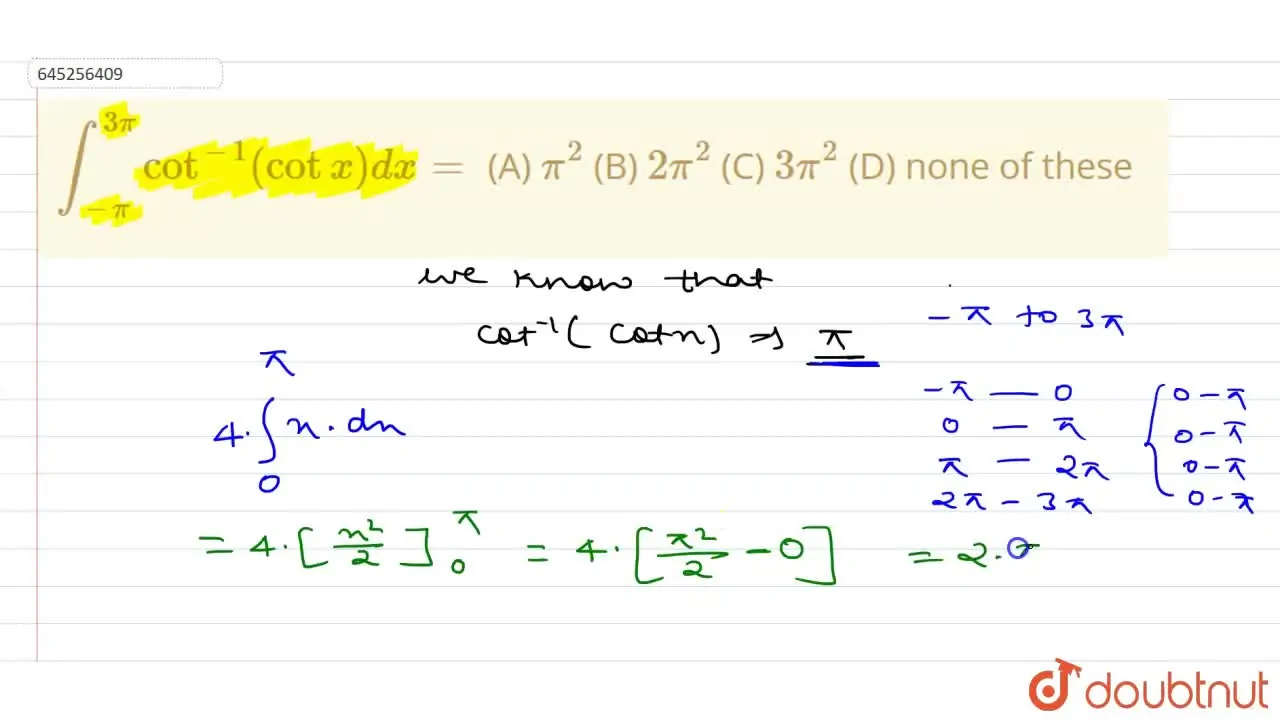 645256409
∫_{-π}^{3π} cot⁻¹(cot x)dx = (A) π² (B) 2π² (C) 3π² (D) none of these
we know that
cot⁻¹( cotx) ⇒ π
- π to 3π
-π — 0 { 0 - π
0 — π 0 - π
π — 2π 0 - π
2π - 3π 0 - π
4. ∫_0^π x. dx
= 4. [x²/2]_0^π = 4. [π²/2 - 0] = 2.
doubtnut